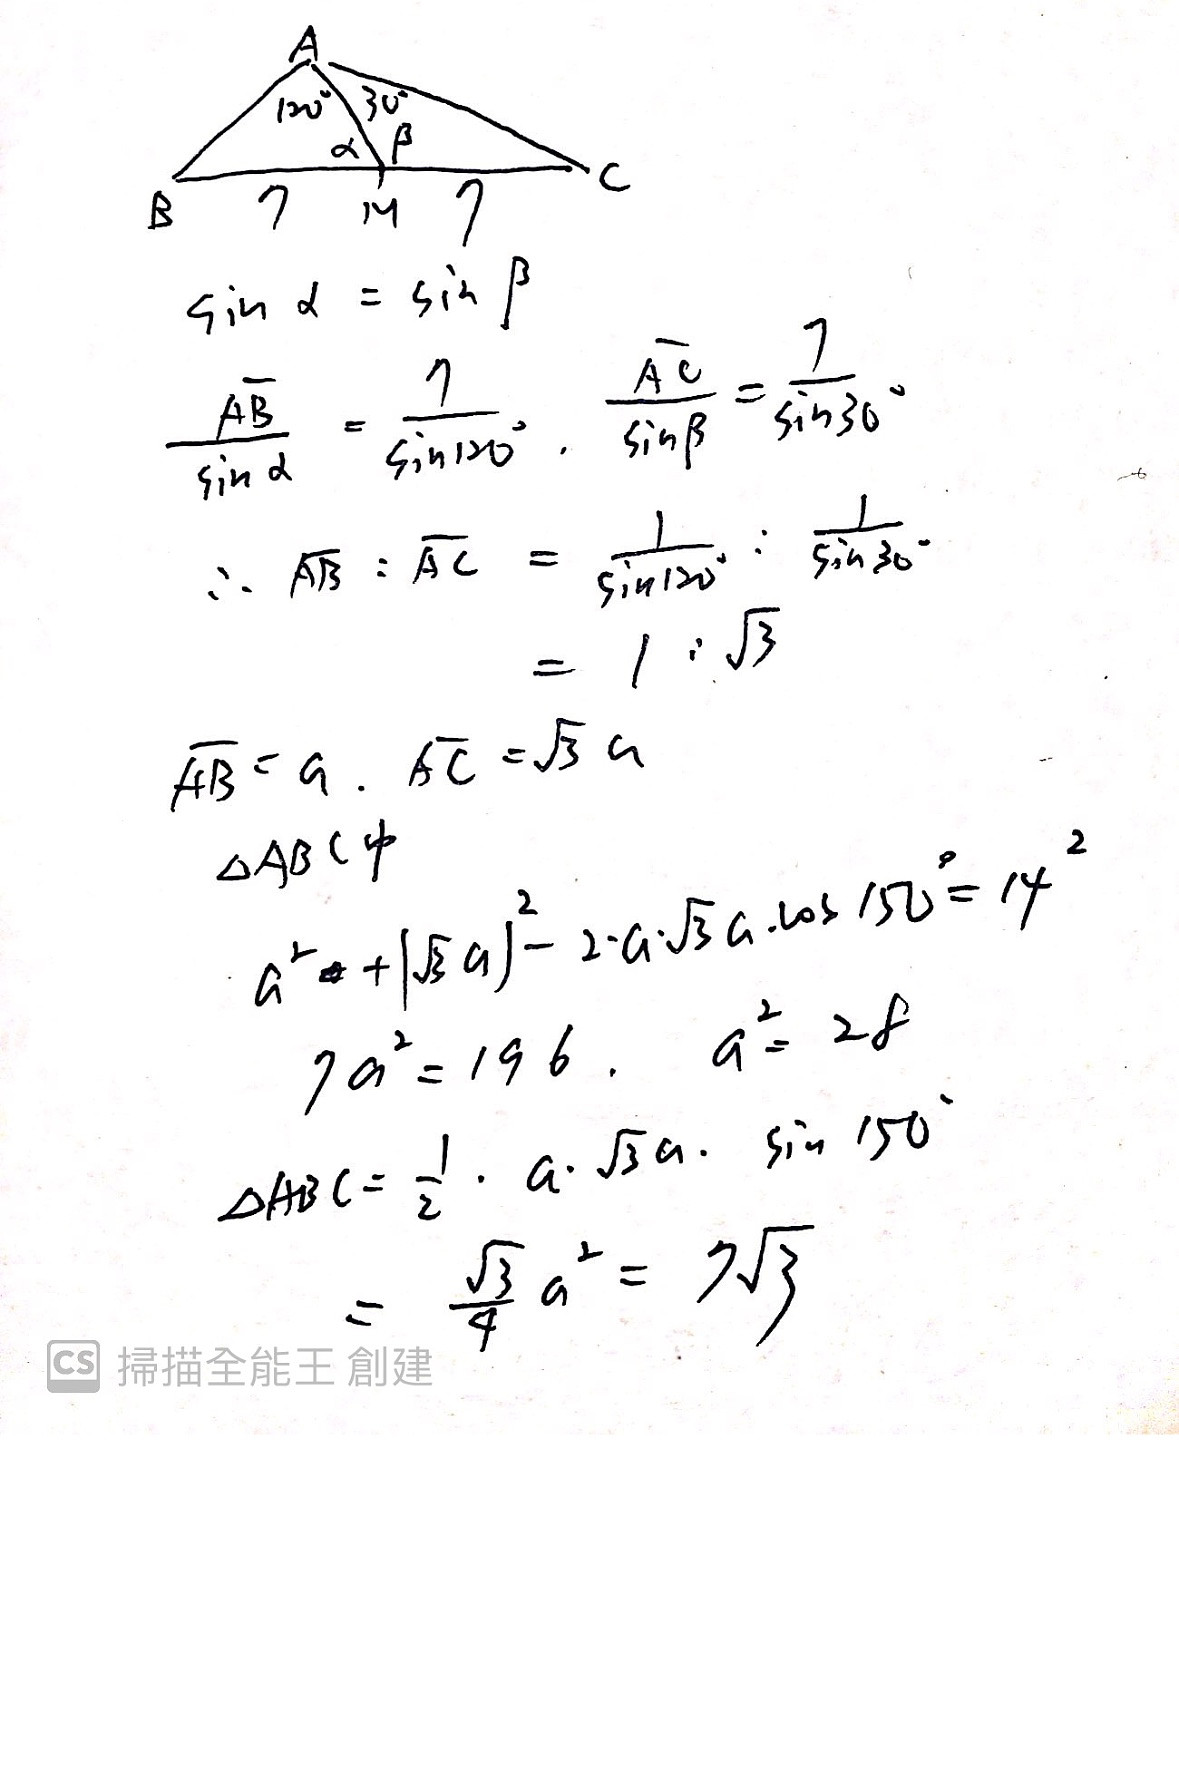 A
120° 30°
α β
B 7 M 7 C
sin α = sin β
AB/sin α = 7/sin120° , AC/sin β = 7/sin30°
∴ AB : AC = 1/sin120° : 1/sin30°
= 1 : √3
AB = a . AC = √3 a
△ABC中
a² + (√3 a)² - 2·a·√3 a·cos 150° = 14²
7a² = 196 . a² = 28
△ABC = 1/2 · a · √3 a · sin 150°
= √3/4 a² = 7√3
CS 掃描全能王 創建